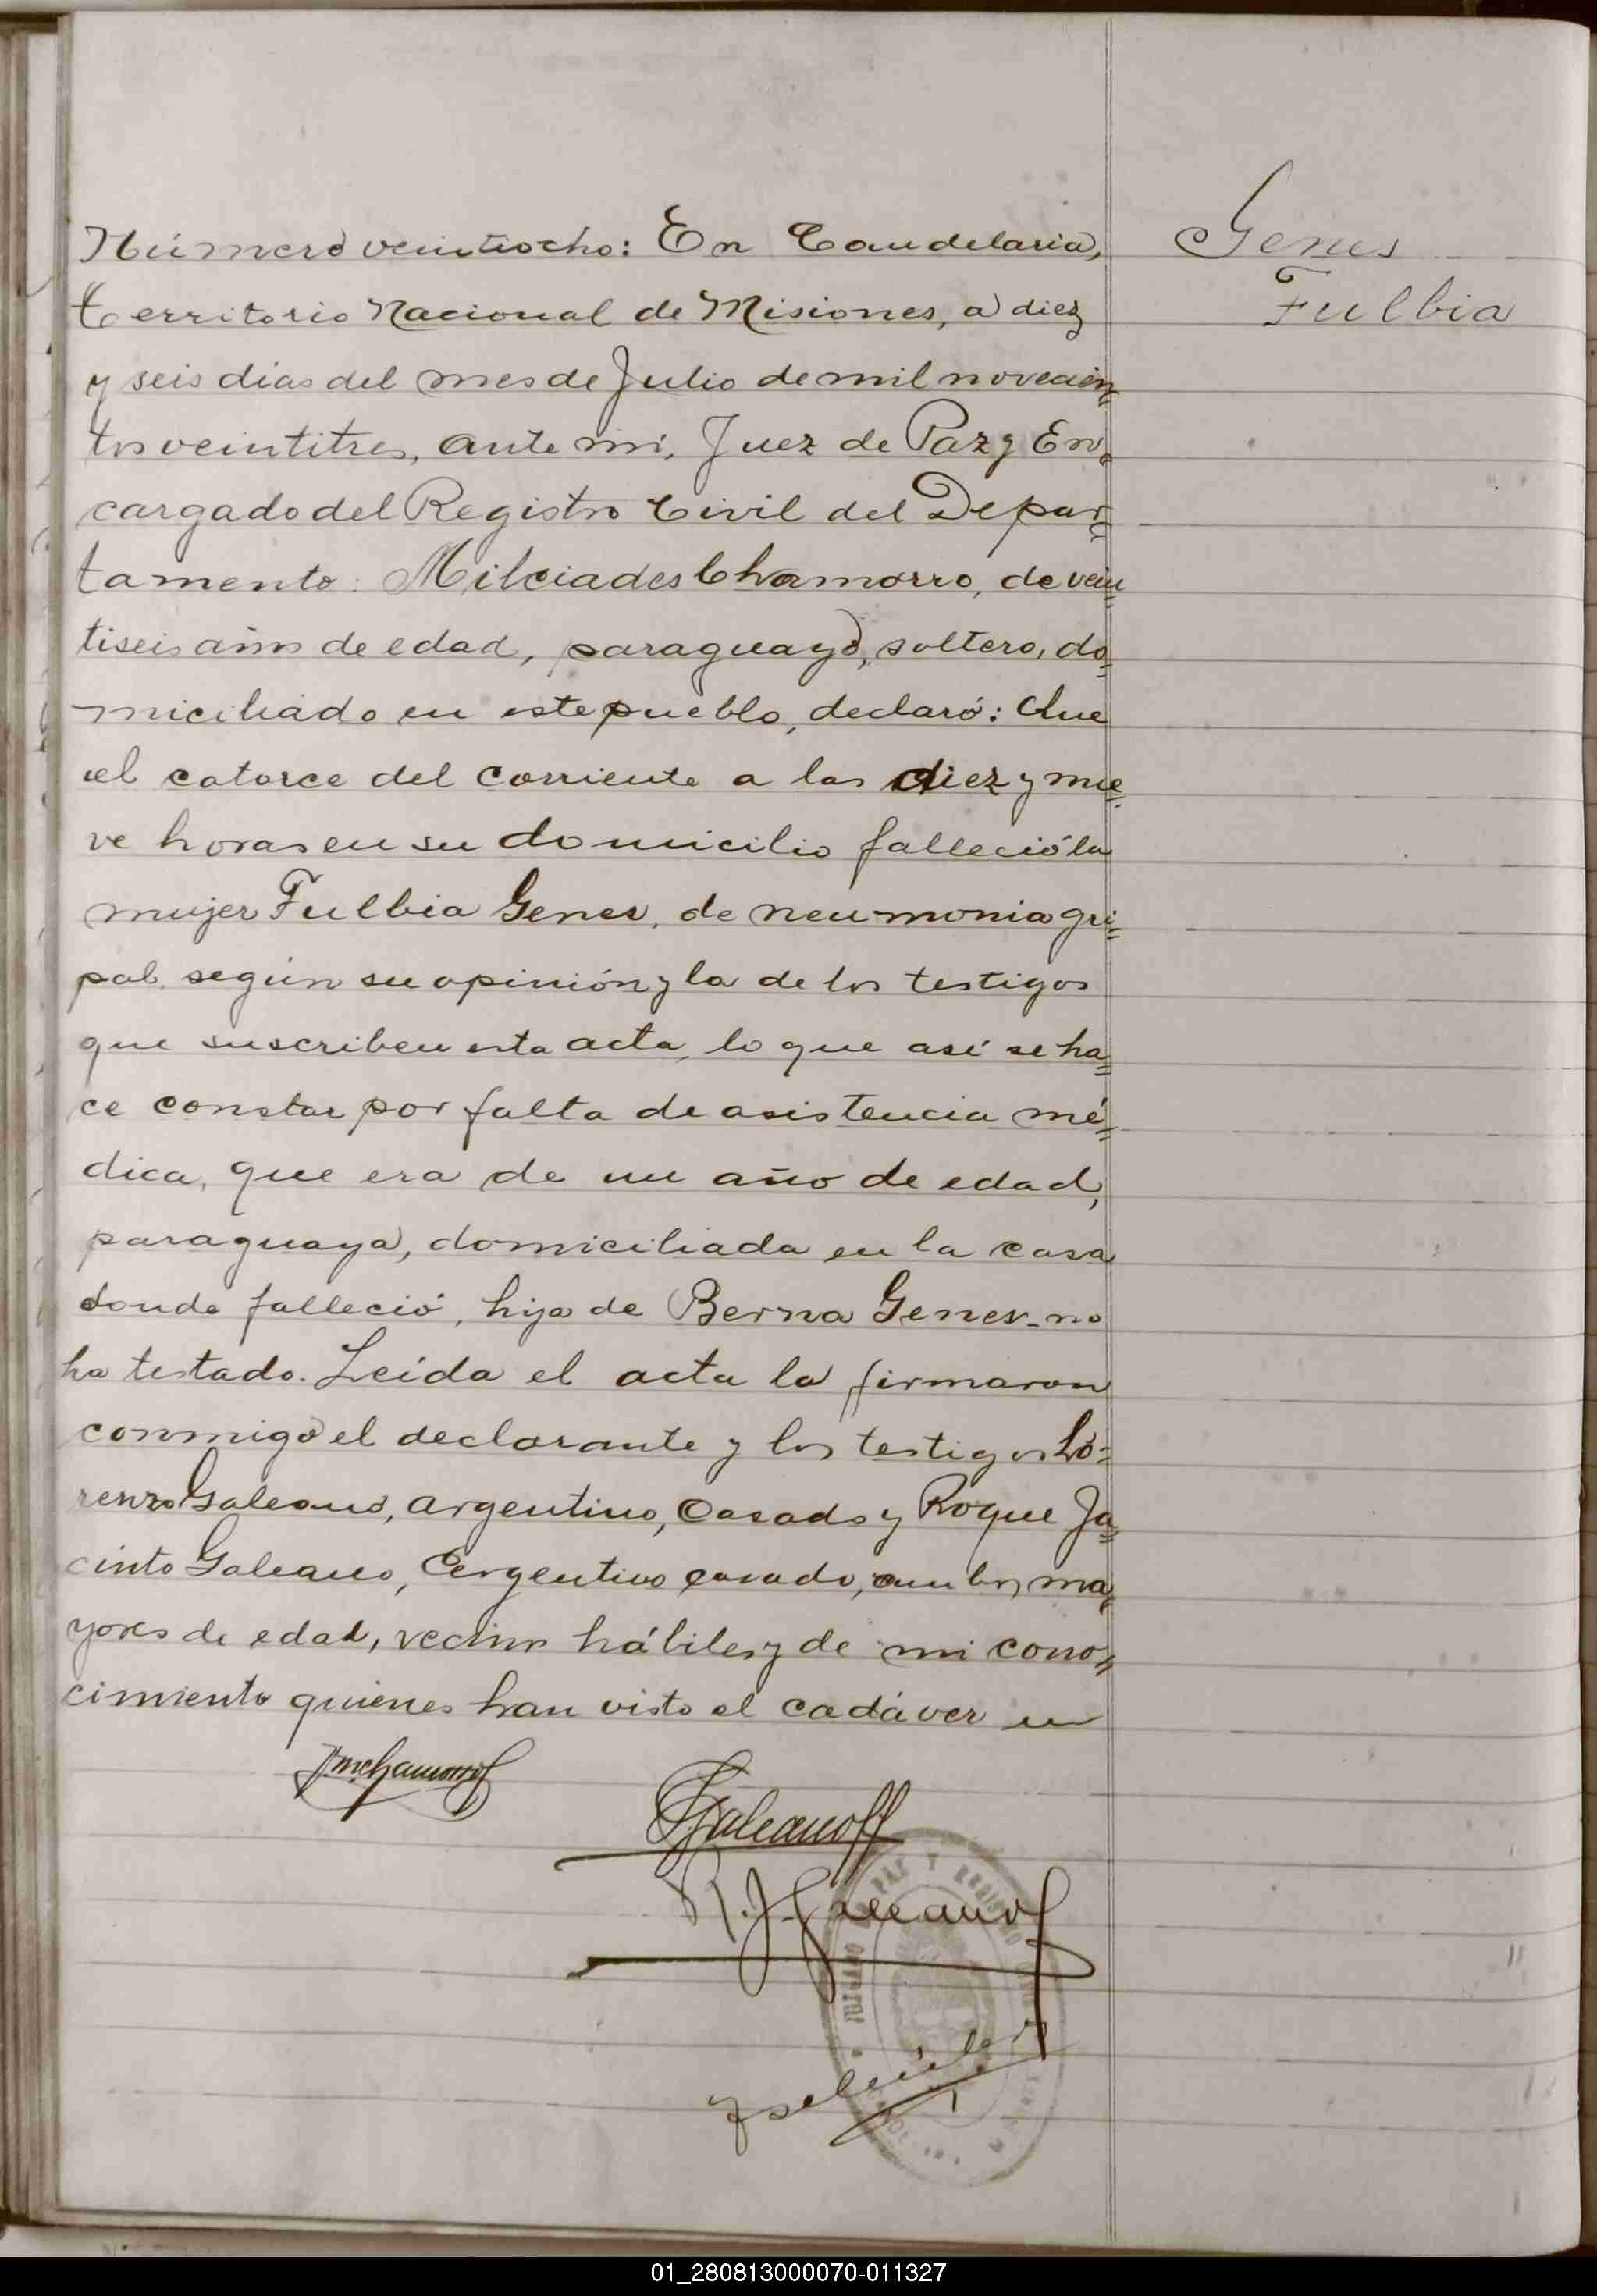 Número veintiocho: En Candelaria,
Territorio Nacional de Misiones, a diez
y seis dias del mes de Julio de mil novecien=
tos veintitres, ante mi, Juez de Paz y En=
cargado del Registro Civil del Depar=
tamento: Milciades Chamorro, de vein=
tiseis años de edad, paraguayo, soltero, do=
miciliado en este pueblo, declaró: Que
el catorce del corriente a las diez y nue=
ve horas en su domicilio falleció la
mujer Fulbia Genes, de neumonia gri=
pal, según su opinión y la de los testigos
que suscriben esta acta, lo que así se ha=
ce constar por falta de asistencia mé=
dica, que era de un año de edad,
paraguaya, domiciliada en la casa
donde falleció, hija de Berna Genes-no
ha testado. Leída el acta la firmaron
conmigo el declarante y los testigos Lo=
renzo Galeano, argentino, Casado y Roque Ja=
cinto Galeano, Argentino casado, ambos ma=
yores de edad, vecinos hábiles y de mi cono=
cimiento quienes han visto el cadáver en
Genes
Fulbia
M Chamorro
L Galeano
R. J. Galeano
PAZ Y REGISTRO
01_280813000070-011327